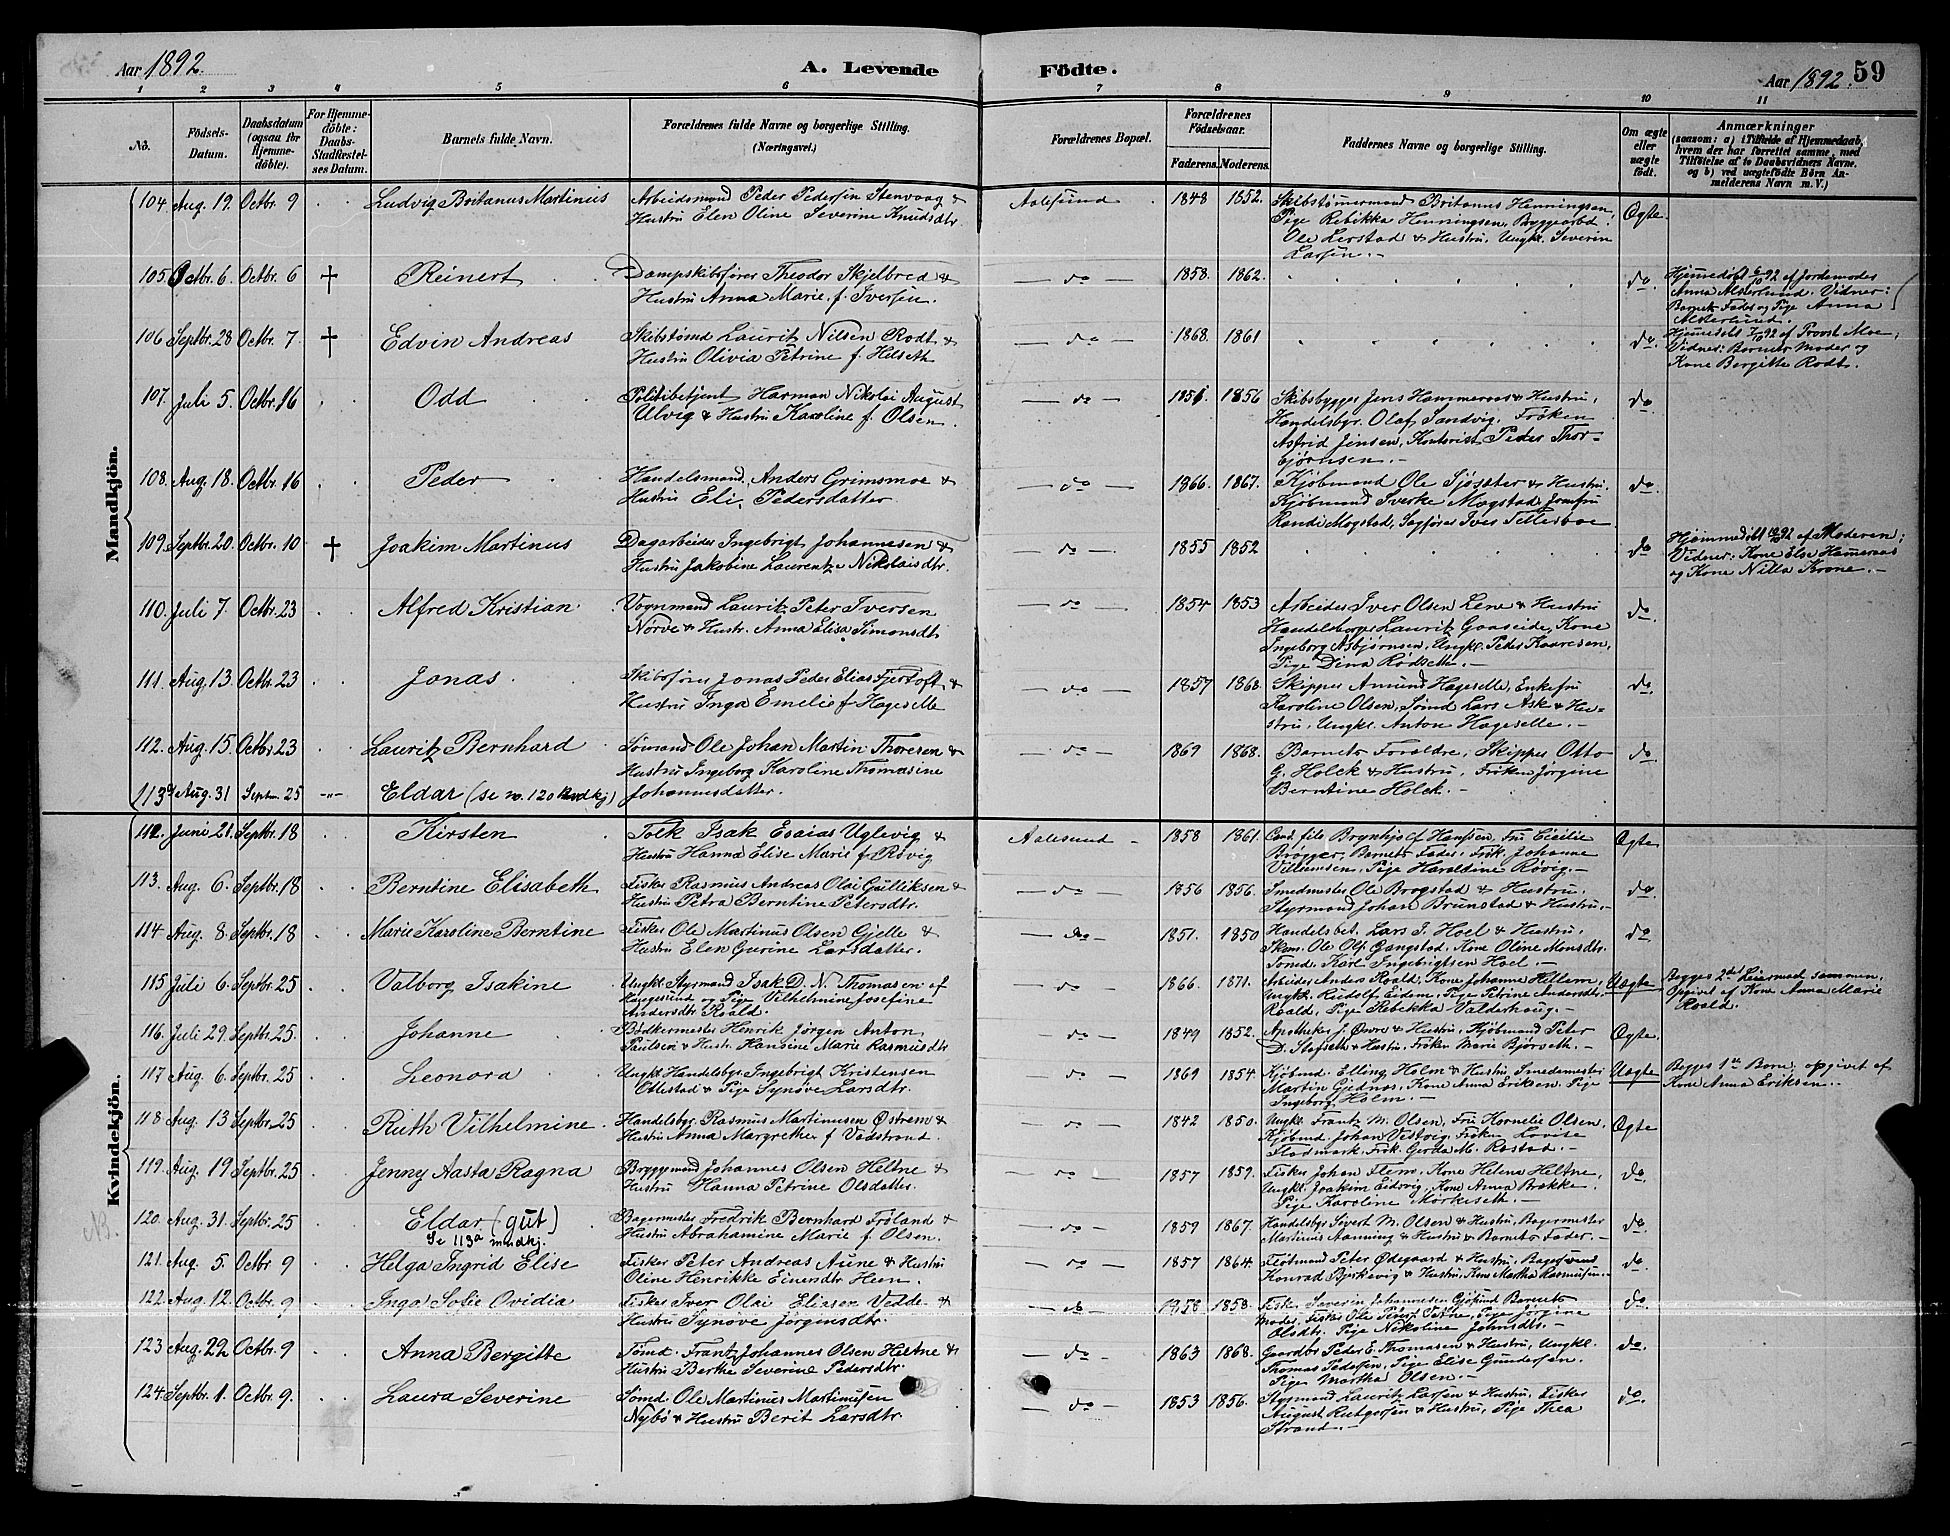 Aar 1892.
A. Levende Födte.
Aar 1892. 59
1 2 3 4 5 6 7 8 9 10 11
No.
Födsels-
Datum.
Daabsdatum
(ogsaa for
Hjemme-
döbte).
For Hjemme-
döbte:
Daabs-
Stadfæstel-
ses Datum.
Barnets fulde Navn.
Forældrenes fulde Navne og borgerlige Stilling.
(Næringsvei.)
Forældrenes Bopæl.
Forældrenes
Födselsaar.
Faderens. Moderens.
Faddernes Navne og borgerlige Stilling.
Om ægte
eller
uægte
født.
Anmærkninger
(saasom: a) i Tilfælde af Hjemmedaab,
hvem der har forrettet samme, med
Tilföielse af to Daabsvidners Navne,
og b) ved uægtefödte Börn An-
melderens Navn m. V.)
Mandkjön.
104. Aug. 19. Octbr. 9 Ludvig Britanus Martinus Arbeidsmand Peder Pedersen Stenvaag & Aalesund 1848 1852. Skibstømermand Britanus Henningsen, Ægte
Hustru Elen Oline Severine Knudsdtr. Pige Rebikka Henningsen, Bryggearbd.
Ole Lerstad & Hustru, Ungkl. Severin
Larsen.
105. Octbr. 6. Octbr. 6 + Reinert Dampskibsfører Theodor Skjelbred & do 1858. 1862. do. Hjemmedøbt 6/10 92 af Jordemoder
Hustru Anna Marie f. Iversen. Anna Alsterlund. Vidner:
Barnets Fader og Pige Anna
Alsterlund.
106 Septbr. 28 Octbr. 7. + Edvin Andreas Skibstømd Laurits Nilsen Rodt & do 1868. 1861 do. Hjemmedøbt 7/10 92 af Provst Moe,
Hustru Olivia Petrine f. Helseth Vidner: Barnets Moder og
Kone Bergitte Rodt.
107. Juli 5. Octbr. 16 Odd Politibetjent Harman Nikolai August do 1851 1856 Skibsbygger Jens Hammeraas & Hustru, do
Ulvig & Hustru Karoline f. Olsen. Handelsbgr. Olaf Sandvig, Frøken
Astrid Jensen, Kontorist Peder Thor-
bjørnsen.
108. Aug. 18. Octbr. 16 Peder Handelsmand Anders Grimsmoe & do 1866. 1867. Kjøbmand Ole Sjøsæter & Hustru, do.
Hustru Eli Pedersdatter Kjøbmand Sverke Mogstad, Jomfru
Randi Mogstad, Sagfører Iver Tellesboe
109. Septbr. 20. Octbr. 10 + Joakim Martinus Dagarbeider Ingebrigt Johannesen & do 1855 1852 do Hjemmedøbt 10/10 92 af Moderen;
Hustru Jakobine Laurentze Nikolaisdtr. Vidner: Kone Else Hameraas
og Kone Nilla Krone.
110. Juli 7. Octbr. 23 Alfred Kristian Vognmand Laurits Peter Iversen do 1854 1853 Arbeider Iver Olsen Lene & Hustru do.
Nørve & Hustr. Anna Elisa Simonsdt. Handelsborger Lauritz Gaaseide, Kone
Ingeborg Asbjørnsen, Ungkl. Peder Kaaresen,
Pige Dina Rødseth.
111. Aug. 13. Octbr. 23 Jonas Skibsfører Jonas Peder Elias Fjertoft & do 1857 1868. Skipper Amund Hageselle, Enkefru do
Hustru Inga Emelie f Hageselle Karoline Olsen, Sømd Lars Ask & Hu-
stru, Ungkl. Anton Hageselle.
112. Aug. 15. Octbr. 23 Lauritz Bernhard Sømand Ole Johan Martin Thoresen & do 1869 1868. Barnets Forældre, Skipper Otto do
Hustru Ingeborg Karoline Thomasine G. Holck & Hustru, Frøken Jørgine
113a Aug. 31 Septem. 25 -"- Eldar (se no. 120 kvdkj) Johannesdatter. Berntine Holck.
Kvindekjön.
112. Juni 21. Septbr. 18 Kirsten Tolk Isak Esaias Uglevig & Aalesund 1858 1861. Cand. file Brynhjolf Hanssen, Fru Cicilie Ægte
Hustru Hanna Elise Marie f. Røvig Brøgger, Barnets Fader, Frøk. Johanne
Villumsen, Pige Haraldine Røvig.
113. Aug. 6. Septbr. 18 Berntine Elisabeth Fisker Rasmus Andreas Olai Gulliksen & do 1856 1856. Smedmester Ole Brogstad & Hustru, do.
Hustru Petra Berntine Petersdtr. Styrmand Johan Brunstad & Hustru.
114 Aug. 8. Septbr. 18 Marie Karoline Berntine Fisker Ole Martinus Olsen Gjelle & do 1851. 1850 Handelsbet. Lars S. Hoel & Hustru, do
Hustru Elen Gurine Larsdatter. Skom. Ole Olf. Gangstad, Kone Oline Monsdtr.
Tømd. Karl Ingebrigtsen Hoel.
115 Juli 6. Septbr. 25 Valborg Isakine Ungkl Styrmand Isak D. N. Thomasen af do 1866. 1871. Arbeider Anders Roald, Kone Johanne Hillem, Uægte Begges 2det Leiermaal sammen,
Haugesund og Pige Vilhelmine Josefine Ungkl. Rudolf Eidem, Pige Petrine Andersdtr. Opgivet af Kone Anna Marie
Andersdtr Roald. Roald, Pige Rebikka Valderhaug. Roald
116. Juli 29. Septbr. 25. Johanne Bødkermester Henrik Jørgen Anton do 1849 1852. Apotheker J. Øwre & Hustru, Kjøbmand Peter Ægte.
Paulsen & Hust. Hansine Marie Rasmusdtr D. Stafseth & Hustru, Frøken Marie Bjørseth.
117 Aug. 6. Septbr. 25 Leonora Ungkl Handelsbgr Ingebrigt Kristensen do 1869 1854. Kjøbmd. Elling Holm & Hustru, Smedemester Uægte Begges 1ste Barn, opgivet af
Ottestad & Pige Synøve Larsdtr. Martin Gjednos, Kone Anna Eriksen, Pige Kone Anna Eriksen.
Ingeborg Holm.
118 Aug. 13 Septbr. 25 Ruth Vilhelmine Handelsbgr. Rasmus Martinusen Østrem & do 1842 1850. Ungkl Frantz M. Olsen, Fru Kornelie Olsen, Ægte
Hustru Anna Margrethe f Vadstrand. Kjøbmd. Johan Vestvig, Frøken Lovise
Flodmark, Frøk. Gerda M. Rostad.
119. Aug. 19 Septbr. 25 Jenny Aasta Ragna Bryggemand Johannes Olsen Heltne & do 1857 1859. Fisker Johan Flem, Kone Helene Heltne, do
Hustru Hanna Petrine Olsdatter. Ungkl Joakim Eidsvig, Kone Anna Bække,
Pige Karoline Mørkeseth.
NB. 120. Aug. 31 Septbr. 25 Eldar (gut) Bagermester Fredrik Bernhard Frøland & do 1859 1867. Handelsbgr Sivert M. Olsen & Hustru, Bagermester do.
Se 113a mandkj. Hustru Abrahamine Marie f. Olsen. Martinus Aanning & Hustru & Barnets Fader.
121. Aug. 5. Octbr 9 Helga Ingrid Elise Fisker Peter Andreas Aune & Hustru do 1857 1864. Fløtmand Peter Ødegaard & Hustru, Bagersvend do.
Oline Henrikke Einersdtr Heen. Konrad Bjerkevig & Hustru, Kone Martha Rasmusen.
122. Aug. 12. Octbr. 9 Inga Sofie Ovidia Fisker Iver Olai Eliasen Vedde & do 1858 1858. Fisker Severin Johannesen Gjøsund, Barnets do.
Hustru Synøve Jørgensdtr. Moder, Fisker Ole Peter Vedde, Pige Jørgine
Olsdtr. Pige Nikoline Johnsdtr.
123 Aug. 22 Octbr. 9 Anna Bergitte Tømd. Frantz Johannes Olsen Heltne & do 1863 1868. Gaardbr Peder E. Thomasen & Hustru, Ungkl. do.
Hustru Berthe Severine Pedersdtr. Thomas Pedersen, Pige Elise Gundersen,
Pige Martha Olsen.
124. Septbr. 1. Octbr. 9. Laura Severine Sømd. Ole Martinus Martinusen do 1853 1856. Styrmand Lauritz Larsen & Hustru, Fisker do.
Nybø & Hustru Berit Larsdtr. August Rutgersen & Hustru, Pige Thea
Strand.